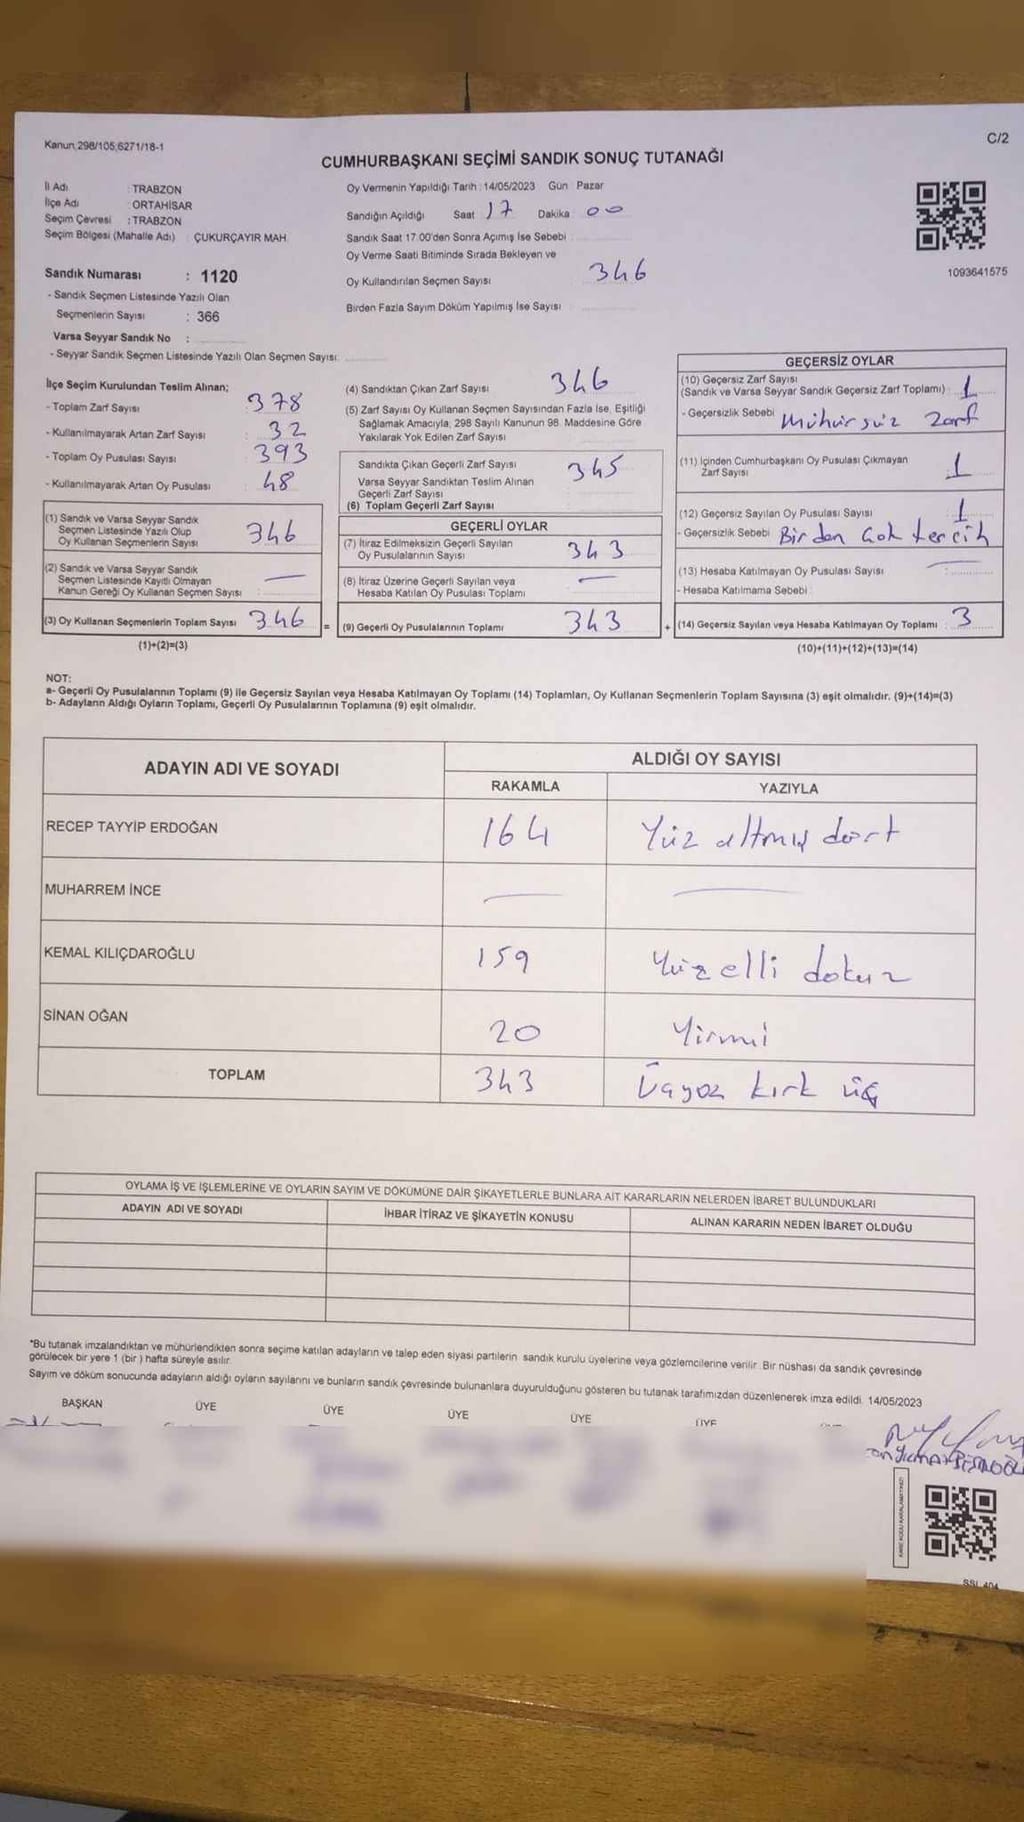 Kanun 298/105,6271/18-1
C/2
CUMHURBAŞKANI SEÇİMİ SANDIK SONUÇ TUTANAĞI
İl Adı : TRABZON
İlçe Adı : ORTAHİSAR
Seçim Çevresi : TRABZON
Seçim Bölgesi (Mahalle Adı) : ÇUKURÇAYIR MAH.
Sandık Numarası : 1120
- Sandık Seçmen Listesinde Yazılı Olan
Seçmenlerin Sayısı : 366
Varsa Seyyar Sandık No :
- Seyyar Sandık Seçmen Listesinde Yazılı Olan Seçmen Sayısı:
Oy Vermenin Yapıldığı Tarih : 14/05/2023 Gün Pazar
Sandığın Açıldığı Saat 17 Dakika 00
Sandık Saat 17:00'den Sonra Açımış İse Sebebi
Oy Verme Saati Bitiminde Sırada Bekleyen ve
Oy Kullandırılan Seçmen Sayısı 346
Birden Fazla Sayım Döküm Yapılmış İse Sayısı
1093641575
İlçe Seçim Kurulundan Teslim Alınan;
- Toplam Zarf Sayısı : 378
- Kullanılmayarak Artan Zarf Sayısı : 32
- Toplam Oy Pusulası Sayısı : 393
- Kullanılmayarak Artan Oy Pusulası : 48
(1) Sandık ve Varsa Seyyar Sandık
Seçmen Listesinde Yazılı Olup
Oy Kullanan Seçmenlerin Sayısı 346
(2) Sandık ve Varsa Seyyar Sandık
Seçmen Listesinde Kayıtlı Olmayan
Kanun Gereği Oy Kullanan Seçmen Sayısı : —
(3) Oy Kullanan Seçmenlerin Toplam Sayısı 346 =
(1)+(2)=(3)
(4) Sandıktan Çıkan Zarf Sayısı 346
(5) Zarf Sayısı Oy Kullanan Seçmen Sayısından Fazla İse, Eşitliği
Sağlamak Amacıyla, 298 Sayılı Kanunun 98. Maddesine Göre
Yakılarak Yok Edilen Zarf Sayısı
Sandıkta Çıkan Geçerli Zarf Sayısı 345
Varsa Seyyar Sandıktan Teslim Alınan
Geçerli Zarf Sayısı
(6) Toplam Geçerli Zarf Sayısı
GEÇERLİ OYLAR
(7) İtiraz Edilmeksizin Geçerli Sayılan
Oy Pusulalarının Sayısı 343
(8) İtiraz Üzerine Geçerli Sayılan veya
Hesaba Katılan Oy Pusulası Toplamı —
(9) Geçerli Oy Pusulalarının Toplamı 343 +
GEÇERSİZ OYLAR
(10) Geçersiz Zarf Sayısı
(Sandık ve Varsa Seyyar Sandık Geçersiz Zarf Toplamı) : 1
- Geçersizlik Sebebi Mühürsüz Zarf
(11) İçinden Cumhurbaşkanı Oy Pusulası Çıkmayan
Zarf Sayısı 1
(12) Geçersiz Sayılan Oy Pusulası Sayısı 1
- Geçersizlik Sebebi Birden Çok tercih
(13) Hesaba Katılmayan Oy Pusulası Sayısı : —
- Hesaba Katılmama Sebebi :
(14) Geçersiz Sayılan veya Hesaba Katılmayan Oy Toplamı : 3
(10)+(11)+(12)+(13)=(14)
NOT:
a- Geçerli Oy Pusulalarının Toplamı (9) ile Geçersiz Sayılan veya Hesaba Katılmayan Oy Toplamı (14) Toplamları, Oy Kullanan Seçmenlerin Toplam Sayısına (3) eşit olmalıdır. (9)+(14)=(3)
b- Adayların Aldığı Oyların Toplamı, Geçerli Oy Pusulalarının Toplamına (9) eşit olmalıdır.
ADAYIN ADI VE SOYADI
ALDIĞI OY SAYISI
RAKAMLA YAZIYLA
RECEP TAYYİP ERDOĞAN 164 Yüz altmış dört
MUHARREM İNCE — —
KEMAL KILIÇDAROĞLU 159 Yüz elli dokuz
SİNAN OĞAN 20 Yirmi
TOPLAM 343 Üçyüz kırk üç
OYLAMA İŞ VE İŞLEMLERİNE VE OYLARIN SAYIM VE DÖKÜMÜNE DAİR ŞİKAYETLERLE BUNLARA AİT KARARLARIN NELERDEN İBARET BULUNDUKLARI
ADAYIN ADI VE SOYADI İHBAR İTİRAZ VE ŞİKAYETİN KONUSU ALINAN KARARIN NEDEN İBARET OLDUĞU
*Bu tutanak imzalandıktan ve mühürlendikten sonra seçime katılan adayların ve talep eden siyasi partilerin sandık kurulu üyelerine veya gözlemcilerine verilir. Bir nüshası da sandık çevresinde
görülecek bir yere 1 (bir) hafta süreyle asılır.
Sayım ve döküm sonucunda adayların aldığı oyların sayılarını ve bunların sandık çevresinde bulunanlara duyurulduğunu gösteren bu tutanak tarafımızdan düzenlenerek imza edildi. 14/05/2023
BAŞKAN ÜYE ÜYE ÜYE ÜYE ÜYE
SSL 404